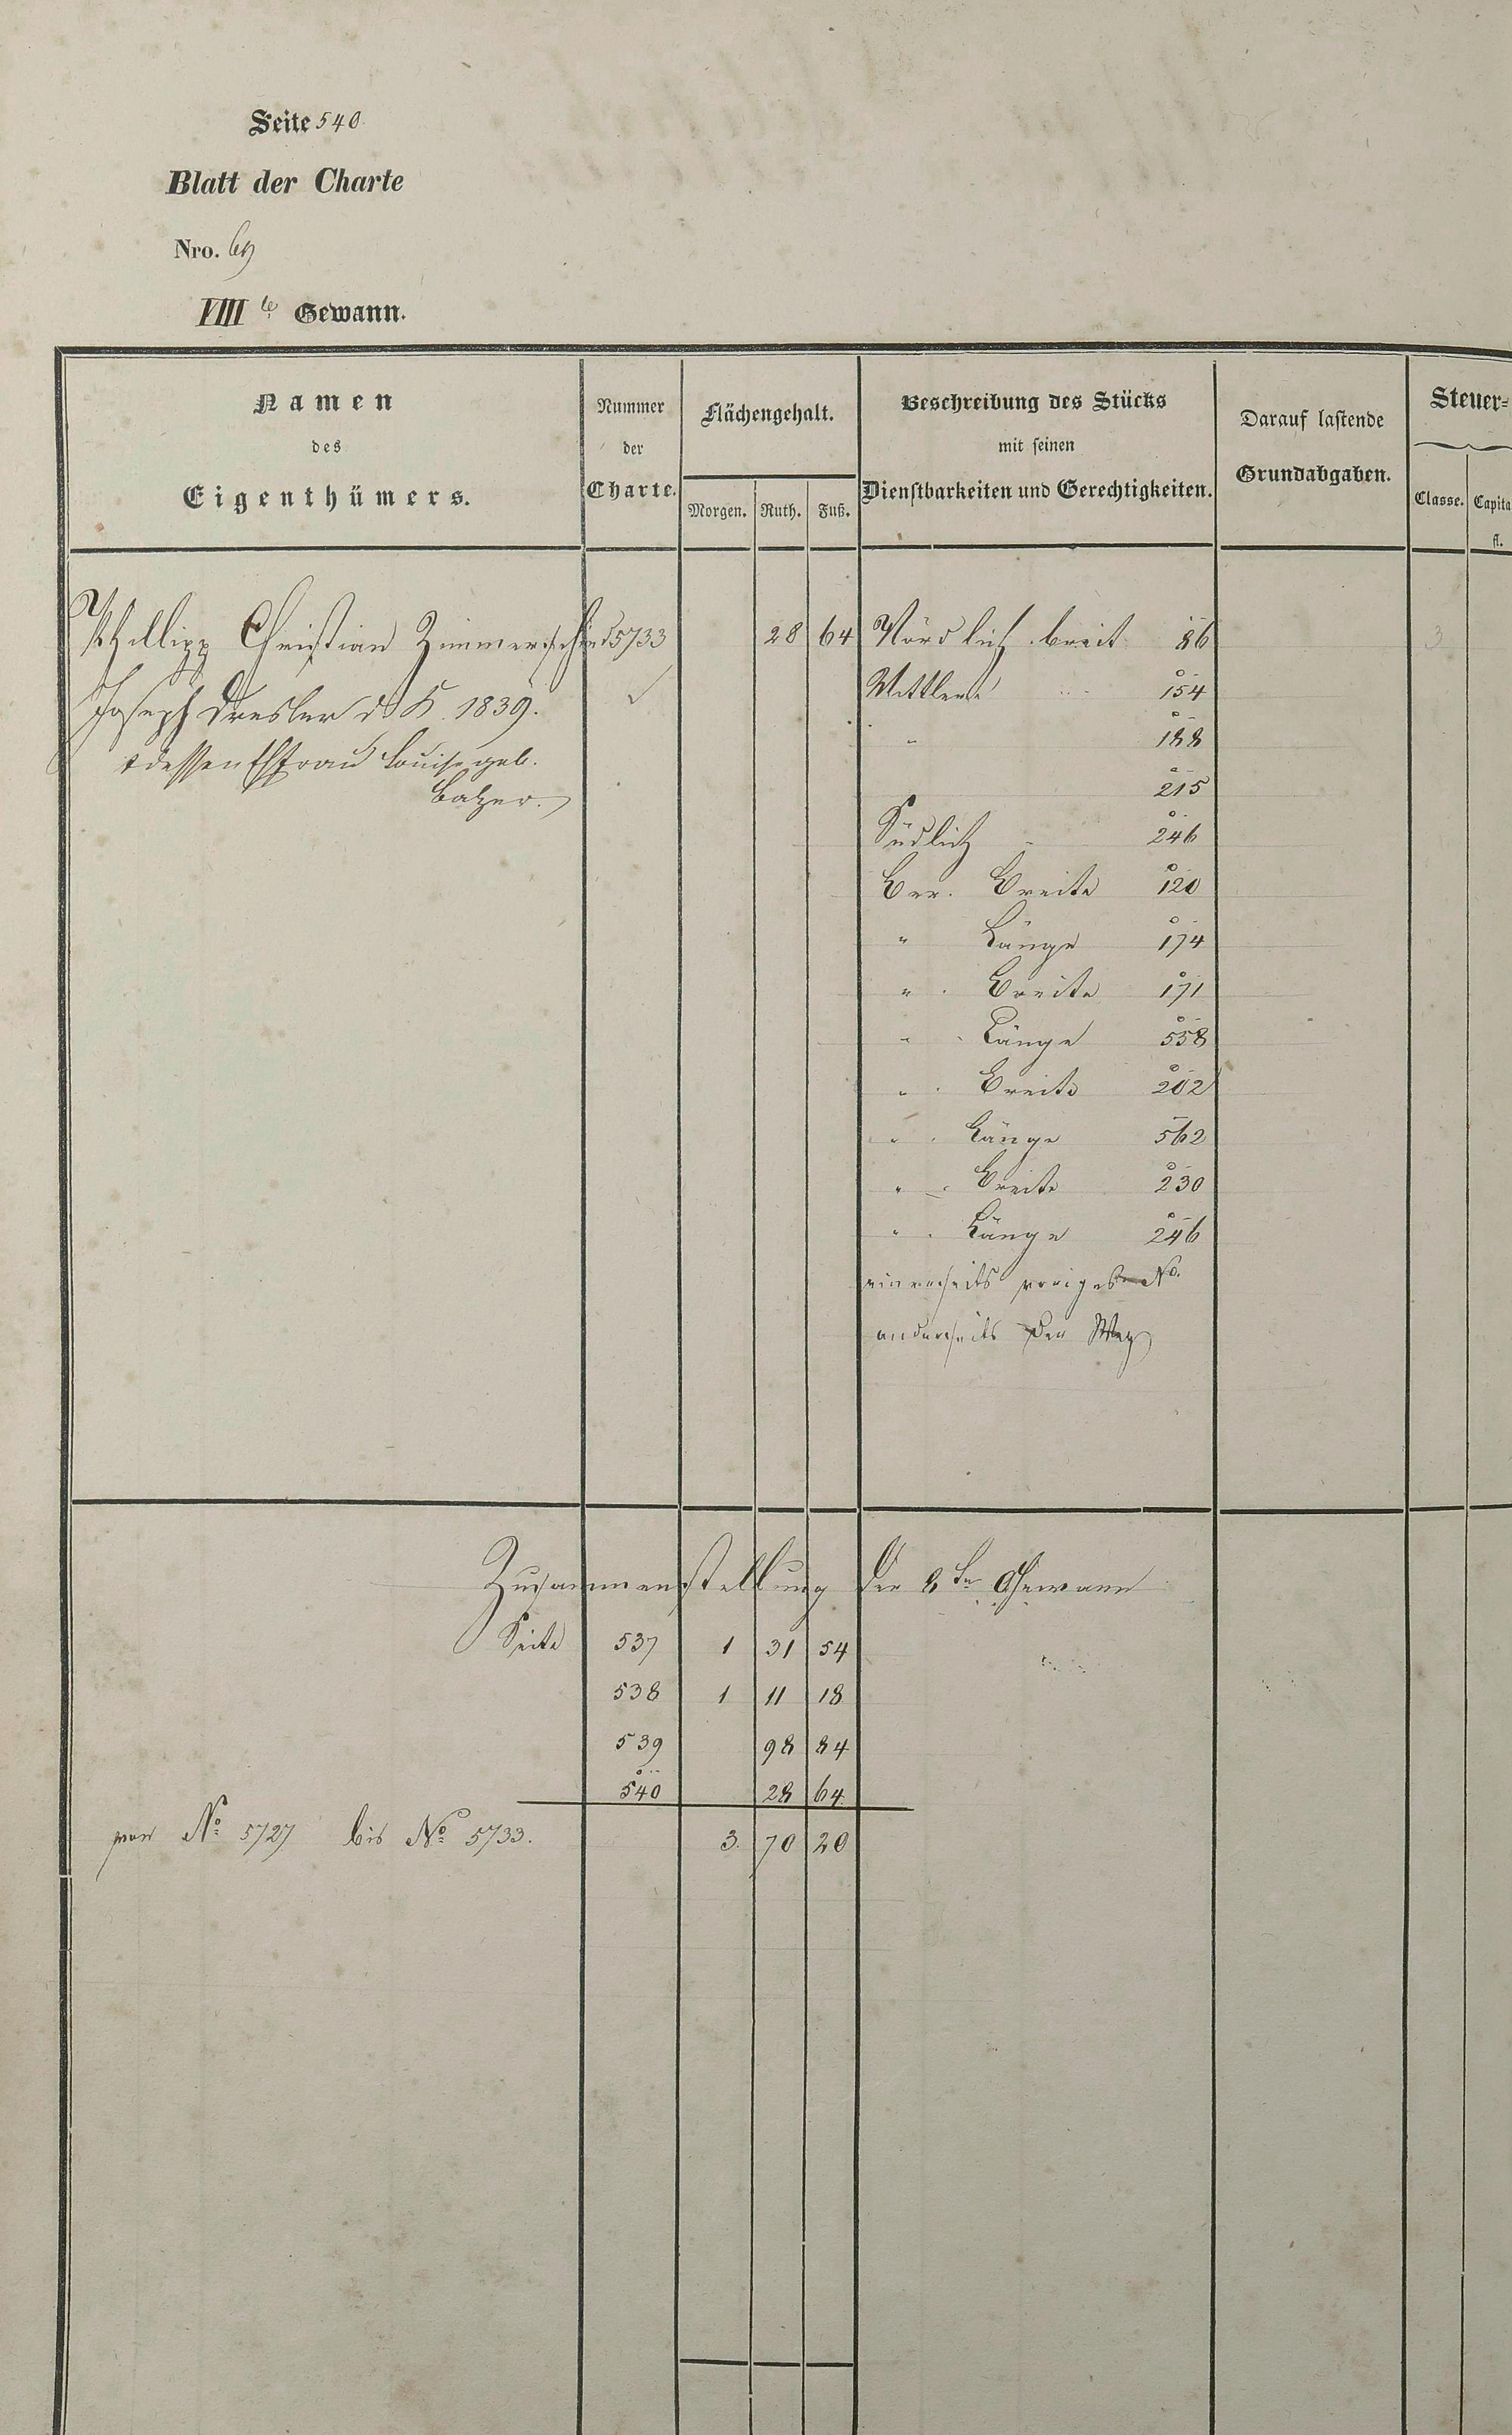 Seite 540
Blatt der Charte
Nro. 69
VIII te Gewann.
Namen des Eigenthümers.
Nummer der Charte.
Flächengehalt.
Morgen. Ruth. Fuß.
Beschreibung des Stücks mit seinen Dienstbarkeiten und Gerechtigkeiten.
Darauf lastende Grundabgaben.
Steuer-
Classe. Capita
fl.
Phillipp Christian Zimmerschied 5733 28 64 Nördlich breit 86 3
Joseph Dresler d. K. 1839. ✓ Mittlere 154
" 188
& dessen Ehfrau Louise geb.
Balzer.
215
Südlich 246
Ber. Breite 120
" Länge 174
" Breite 171
" Länge 558
" Breite 202
" Länge 562
" Breite 230
" Länge 246
einerseits voriges No.
anderseits der Weg
Zusammenstellung der 8te Gewann
Seite 537 1 31 54
538 1 11 18
539 98 84
540 28 64
von No 5727 bis No 5733. 3. 70 20